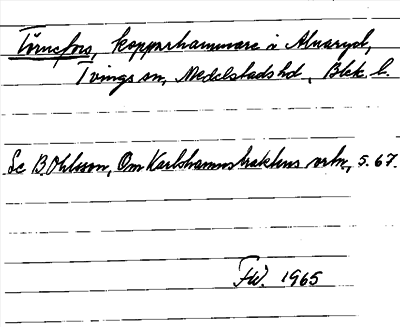 Törnefors, kopparhammare i Alnaryd,
Tvings sn, Medelstads hd, Blek. l.
Se B. Ohlsson, Om Karlshamnstraktens ortn, s. 67.
FW. 1965